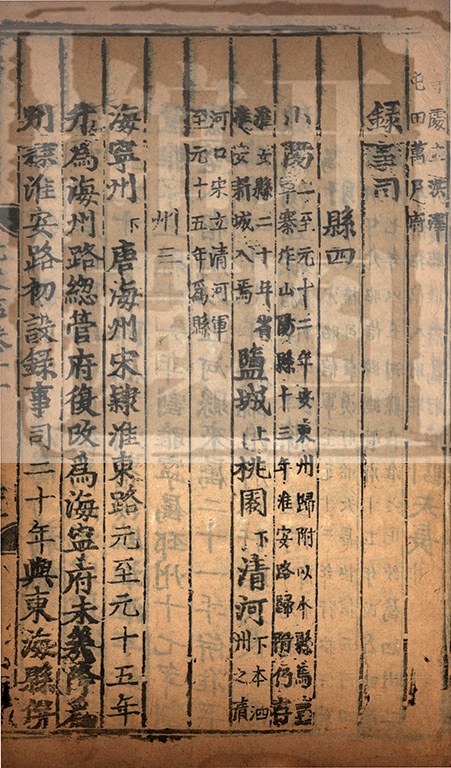 慶立洪澤
屯田萬戶府
錄事司
縣四
山陽上至元十二年安東州歸附以本縣馬
寨作山陽縣十三年淮安路歸附仍存
淮安縣二十年省
淮安新城入焉
鹽城上桃園下清河下本泗
州之清
河口宋立清河軍
至元十五年爲縣
州三
海寧州下唐海州宋隸淮東路元至元十五年
升爲海州路總管府復改爲海寧府未幾降爲
州隸淮安路初設錄事司二十年與東海縣併